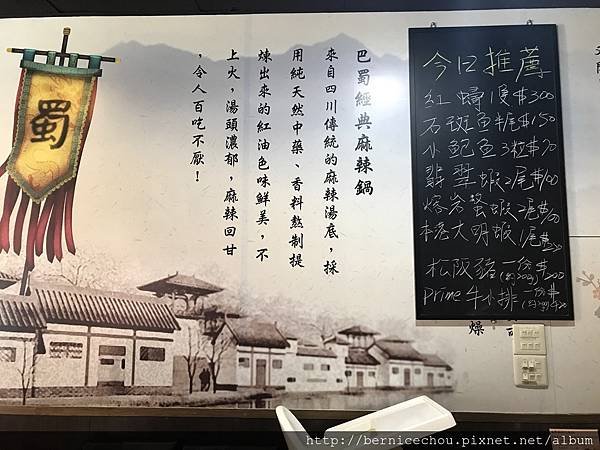 蜀
巴蜀經典麻辣鍋
來自四川傳統的麻辣湯底，採
用純天然中藥、香料熬制提
煉出來的紅油色味鮮美，不
上火，湯頭濃郁，麻辣回甘
，令人百吃不厭！
今日推薦
紅蟳1隻$300
石斑魚半尾$150
小鮑魚3粒$70
翡翠蝦2尾$100
熔岩螯蝦2尾$100
大明蝦1尾$
松阪豬一份$200
Prime牛小排一份$
燥
http://bernicechou.pixnet.net/album